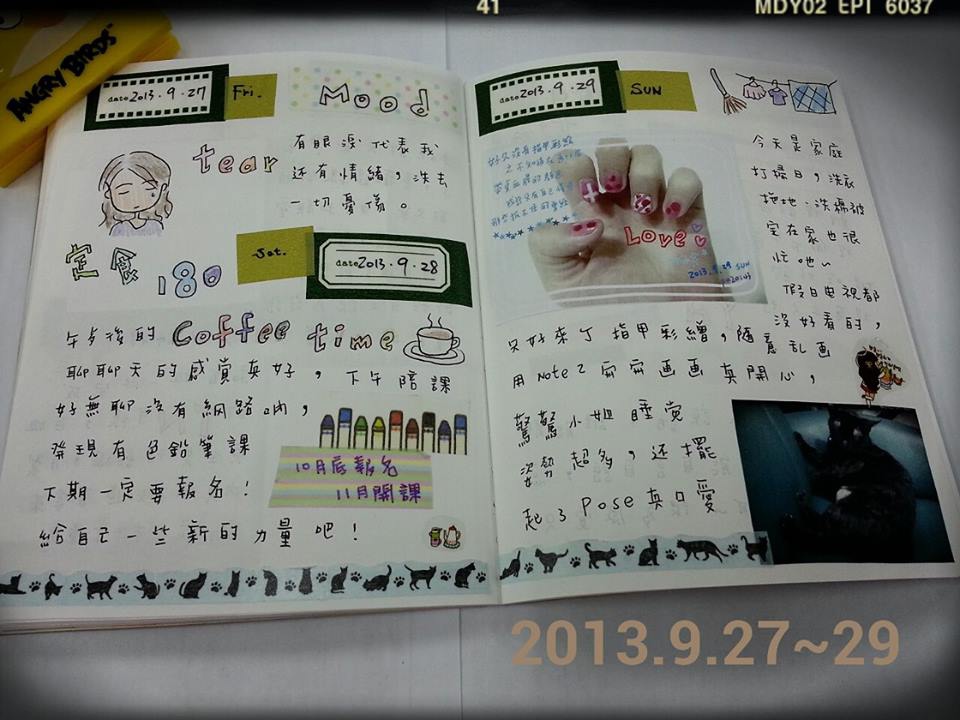 41
MDY02 EPT 6037
ANGRY BIRDS
date 2013.9.27
Fri.
Mood
tear
有眼淚代表我
還有情緒，洗去
一切憂傷。
定食180
Sat.
date 2013.9.28
午後的 Coffee time
聊聊天的感覺真好，下午陪課
好無聊沒有網路喲，
發現有色鉛筆課
下期一定要報名！
給自己一些新的力量吧！
10月底報名
11月開課
date 2013.9.29
SUN
今天是家庭
打掃日，洗衣
拖地、洗棉被
宅在家也很
忙吔~
假日電視都
沒好看的，
只好來了指甲彩繪，隨意乱画
用Note 2 窩窩画画真開心，
好久沒有指甲彩繪
Love
2013.9.29 SUN
驚驚小姐睡覺
姿勢超多，還擺
起了Pose真口愛
2013.9.27~29